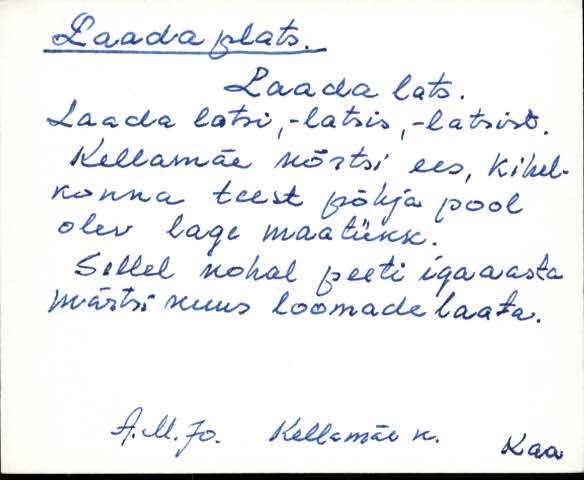 Laada plats.
Laada lats.
Laada latsi, -latsis, -latsist.
Kellamäe kõrtsi ees, kihel-
konna teest põhja pool
olev lage maatükk.
Sellel kohal peeti igaaasta
märtsi kuus loomade laata.
A.M.Jo. Kellamäe k. Kaa